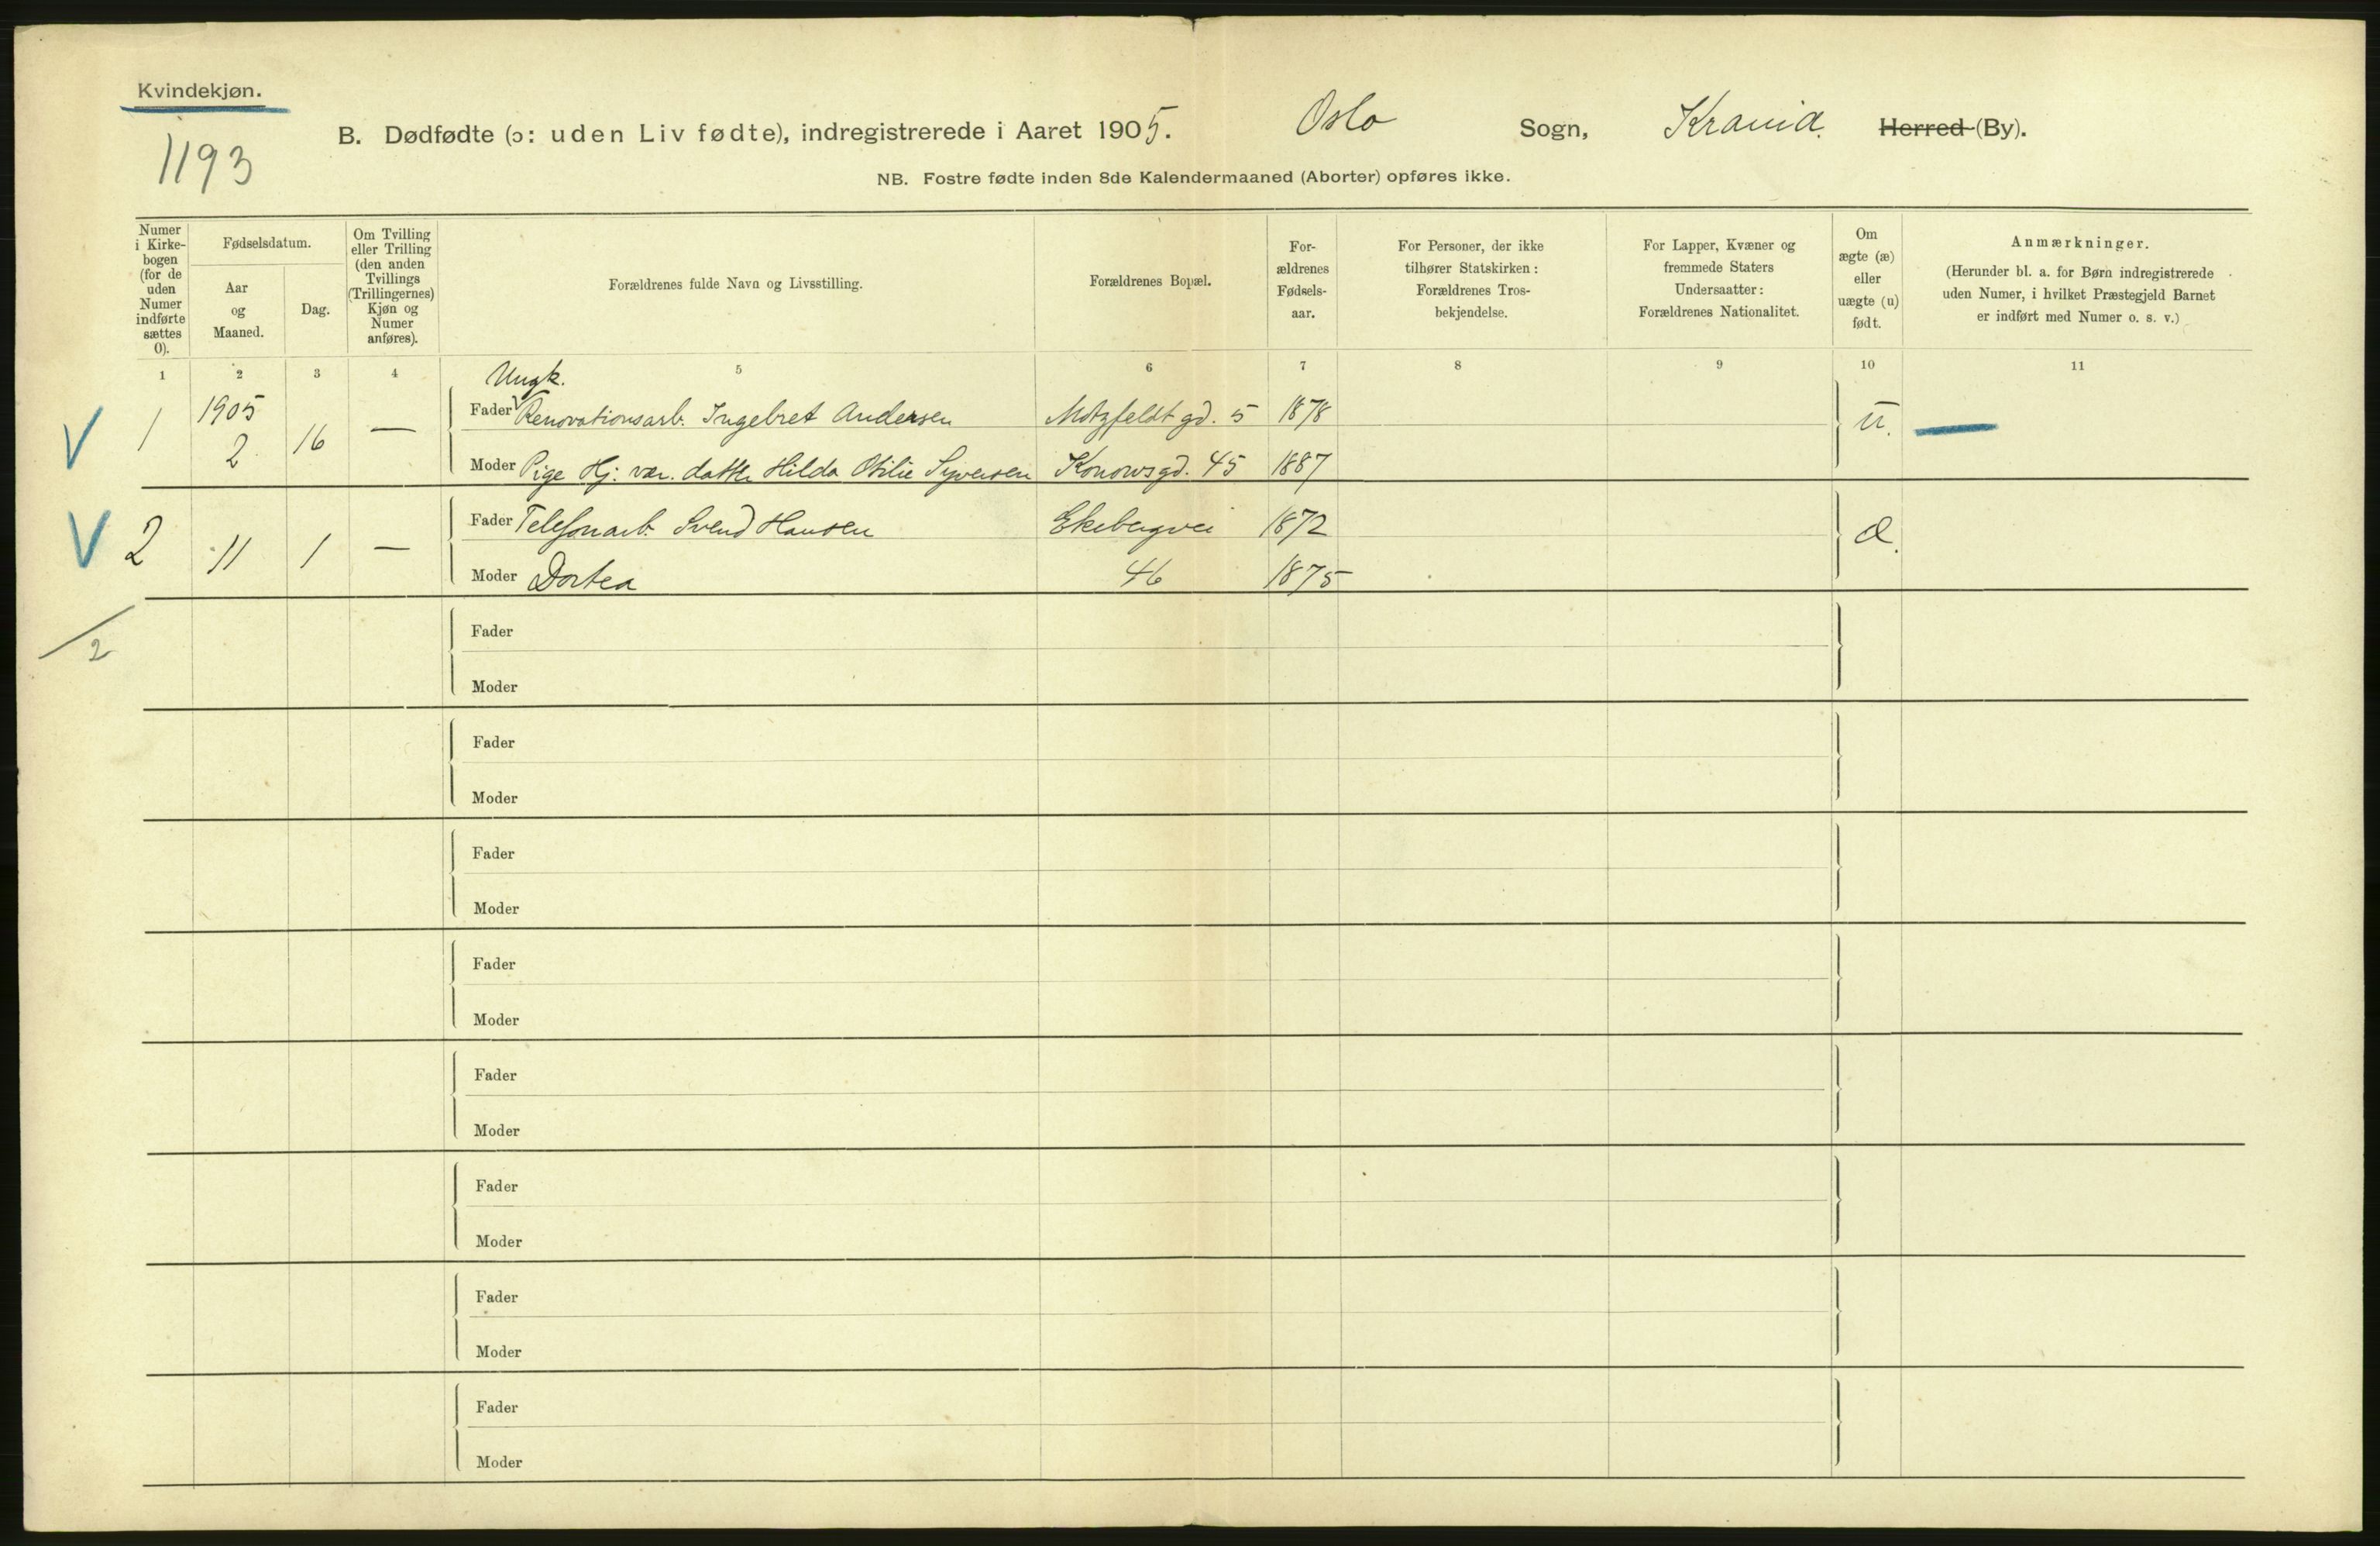 Kvindekjøn.
1193
B. Dødfødte (ɔ: uden Liv fødte), indregistrerede i Aaret 1905. Oslo Sogn, Krania. Herred (By).
NB. Fostre fødte inden 8de Kalendermaaned (Aborter) opføres ikke.
Numer i Kirke-bogen (for de uden Numer indførte sættes 0).
Fødselsdatum.
Aar og Maaned.
Dag.
Om Tvilling eller Trilling (den anden Tvillings (Trillingernes) Kjøn og Numer anføres).
Forældrenes fulde Navn og Livsstilling.
Forældrenes Bopæl.
For-ældrenes Fødsels-aar.
For Personer, der ikke tilhører Statskirken: Forældrenes Tros-bekjendelse.
For Lapper, Kvæner og fremmede Staters Undersaatter: Forældrenes Nationalitet.
Om ægte (æ) eller uægte (u) født.
Anmærkninger.
(Herunder bl. a. for Børn indregistrerede uden Numer, i hvilket Præstegjeld Barnet er indført med Numer o. s. v.)
1 2 3 4 5 6 7 8 9 10 11
Ungk.
V 1 1905 2 16 — Fader Renovationsarb. Ingebret Andersen Motzfeldt gd. 5 1878 u.
Moder Pige Hj. vær. datter Hilda Otilie Syversen Konowsgd. 45 1887
V 2 11 1 — Fader Telefonarb. Svend Hansen Ekebergvei 1872 æ.
Moder Dortea 46 1875
/2
Fader
Moder
Fader
Moder
Fader
Moder
Fader
Moder
Fader
Moder
Fader
Moder
Fader
Moder
Fader
Moder